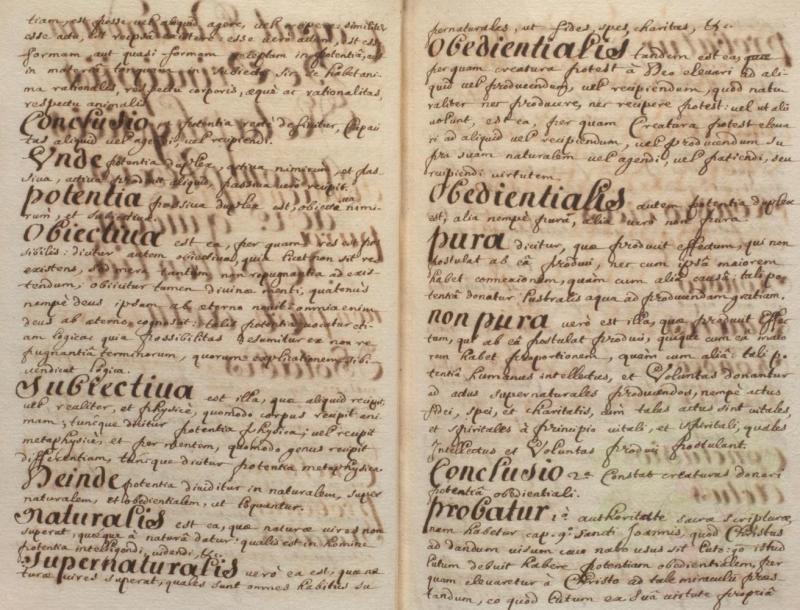 tiam, est posse vel aliquid agere, vel recipere: similiter
esse actu, est recipsa existere: esse vero actum, est esse
formam aut quasi formam receptam in potentiâ,
in mat subiecto sive habet ani-
ma rationalis, respectu corporis, æque ac rationalitas,
respectu animalis
Conclusio potentia rectè definitur, Capaci-
tas aliquid vel agendi, vel recipiendi.
Vnde potentia duplex activa nimirum, et pas-
siva, activa producit aliquid, passiva vero recipit.
potentia passiva duplex est, obiectiva nimi-
rum, et subiectiva.
Obiectiua est ea, per quam res est pos-
sibilis: dicitur autem obiectiva, quia licet non sit re
existens, sed mera tantum non repugnantia ad exis-
tendum, obiicitur tamen divinæ menti, quatenus
nempè deus ipsam ab eterno novit: omnia enim
deus ab æterno cognoscit: talis potentia vocatur eti-
am logica: quia possibilitas desumitur ex non re-
pugnantia terminorum, quorum explicationem sibi
vendicat logica.
Subiectiua est illa, quæ aliquid recipit,
vel realiter, et physicè, quomodo corpus recipit ani-
mam; tuncque dicitur potentia physica; vel recipit
metaphysicè, et per mentem, quomodo genus recipit
differentiam, tuncque dicitur potentia metaphysica.
Deinde potentia dividitur in naturalem, super
naturalem, et obedientialem, ut loquuntur.
Naturalis est ea, quæ naturæ vires non
superat, quæque à naturâ datur; qualis est in homine
potentia intelligendi, videndi, &c.
Supernaturalis verò ea est, quæ na-
turæ vires superat, quales sunt omnes habitus su
pernaturales, ut fides, spes, charitas, &c.
Obedientialis tandem est ea, quæ
per quam creatura potest à Deo elevari ad ali-
quid vel producendum, vel recipiendum, quod natu
raliter nec producere, nec recipere potest: vel ut alii
volunt, est ea, per quam Creatura potest eleva
ri ad aliquid vel recipiendum, vel producendum su
pra suam naturalem vel agendi, vel patiendi, seu
recipiendi virtutem.
Obedientialis autem potentia duplex
est, alia nempè pura, alia vero non pura.
pura dicitur, quæ producit effectum, qui non
postulat ab eâ produci, nec cum ipsâ maiorem
habet connexionem, quam cum aliâ causâ: tali po-
tentiâ donatur lustralis aqua ad producendam gratiam.
non pura verò est illa, quæ producit Effec
tum, qui ab eâ postulat produci, quique cum eâ maio
rem habet proportionem, quam cum aliâ: tali po
tentiâ humanus intellectus, et Voluntas donantur
ad actus supernaturales producendos, nempè actus
fidei, spei, et charitatis, cum tales actus sint vitales,
et spiritales à principio vitali, et spiritali, quales
Intellectus et Voluntas produci postulant.
Conclusio 2ª Constat creaturas donari
potentiâ obedientiali.
probatur 1º authoritate sacræ scripturæ,
nam habetur cap. 9º sancti Joannis, quod Christus
ad dandum visum cæco nato usus sit luto: go istud
lutum debuit habere potentiam obedientialem, per
quam elevaretur à Christo ad tale miraculum præs
tandum, eo quod lutum ex suâ virtute propriâ